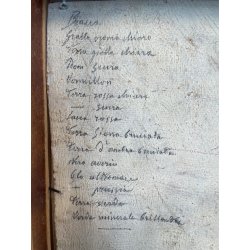 Bianca
Giallo cromo chiaro
Terra gialla chiara
— scura
Vermillon
Terra rossa chiara
— scura
Lacca rossa
Terra Siena bruciata
Terra d'ombra bruciata
Nero avorio
Bleu oltremare
— prussia
Terra verde
Verde minerale brillante